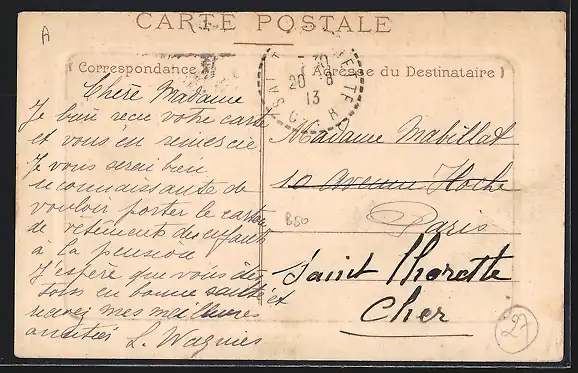 A
CARTE POSTALE
Correspondance
Adresse du Destinataire
30
20-8
13
CHER
Chère Madame
Je bien reçu votre carte
et vous en remercie
Je vous serai bien
reconnaissante de
vouloir porter le carton
de vetements des enfants
à la pension
J'espère que vous êtes
tous en bonne santé et
recevez mes meilleures
amitiés L. Wagnies
Madame Mabillat
10 avenue Hoche
Paris
B50
Saint Thorette
Cher